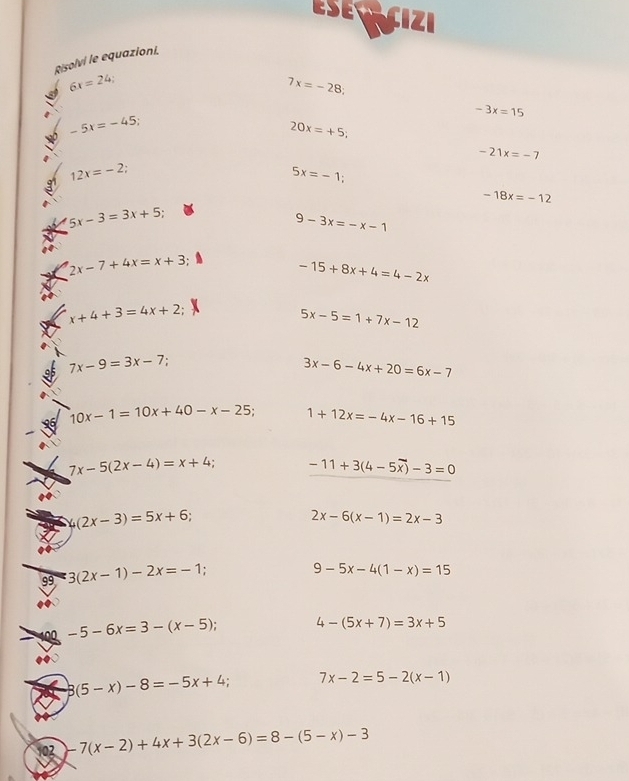 ESERCIZI
Risolvi le equazioni.
6x = 24; 7x = − 28; − 3x = 15
− 5x = − 45; 20x = + 5; − 21x = − 7
12x = − 2; 5x = − 1; − 18x = − 12
5x − 3 = 3x + 5; 9 − 3x = − x − 1
2x − 7 + 4x = x + 3; − 15 + 8x + 4 = 4 − 2x
x + 4 + 3 = 4x + 2; 5x − 5 = 1 + 7x − 12
95 7x − 9 = 3x − 7; 3x − 6 − 4x + 20 = 6x − 7
96 10x − 1 = 10x + 40 − x − 25; 1 + 12x = − 4x − 16 + 15
7x − 5(2x − 4) = x + 4; − 11 + 3(4 − 5x) − 3 = 0
4(2x − 3) = 5x + 6; 2x − 6(x − 1) = 2x − 3
99 3(2x − 1) − 2x = − 1; 9 − 5x − 4(1 − x) = 15
100 − 5 − 6x = 3 − (x − 5); 4 − (5x + 7) = 3x + 5
3(5 − x) − 8 = − 5x + 4; 7x − 2 = 5 − 2(x − 1)
102 − 7(x − 2) + 4x + 3(2x − 6) = 8 − (5 − x) − 3